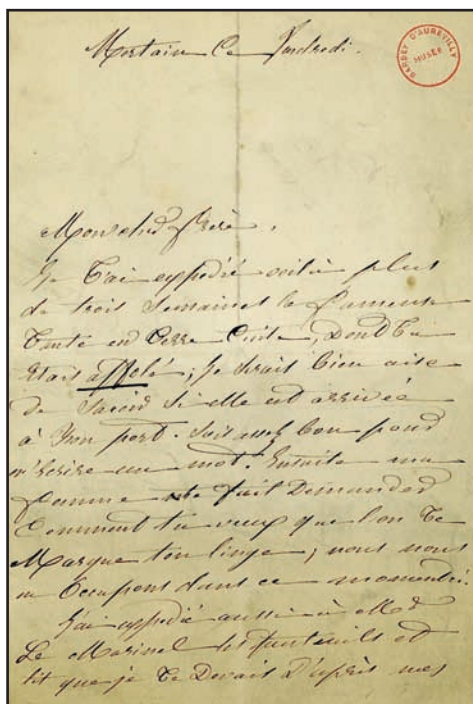 Mortain Ce Vendredi.
BARBEY D'AUREVILLY
MUSÉE
Mon cher frère,
Je t'ai expédié voilà plus
de trois Semaines la fameuse
en terre Cuite, Dont tu
étais affolé ; Je serais bien aise
de Savoir Si elle est arrivée
à bon port. Sois assez bon pour
m'écrire un mot. Ensuite ma
femme te fait Demander
Comment tu veux que l'on te
Marque ton linge ; nous nous
en Occupons dans ce moment-ci.
J'ai expédié aussi à
Le Marinel les fauteuils et
lit que je te Devais D'après mes